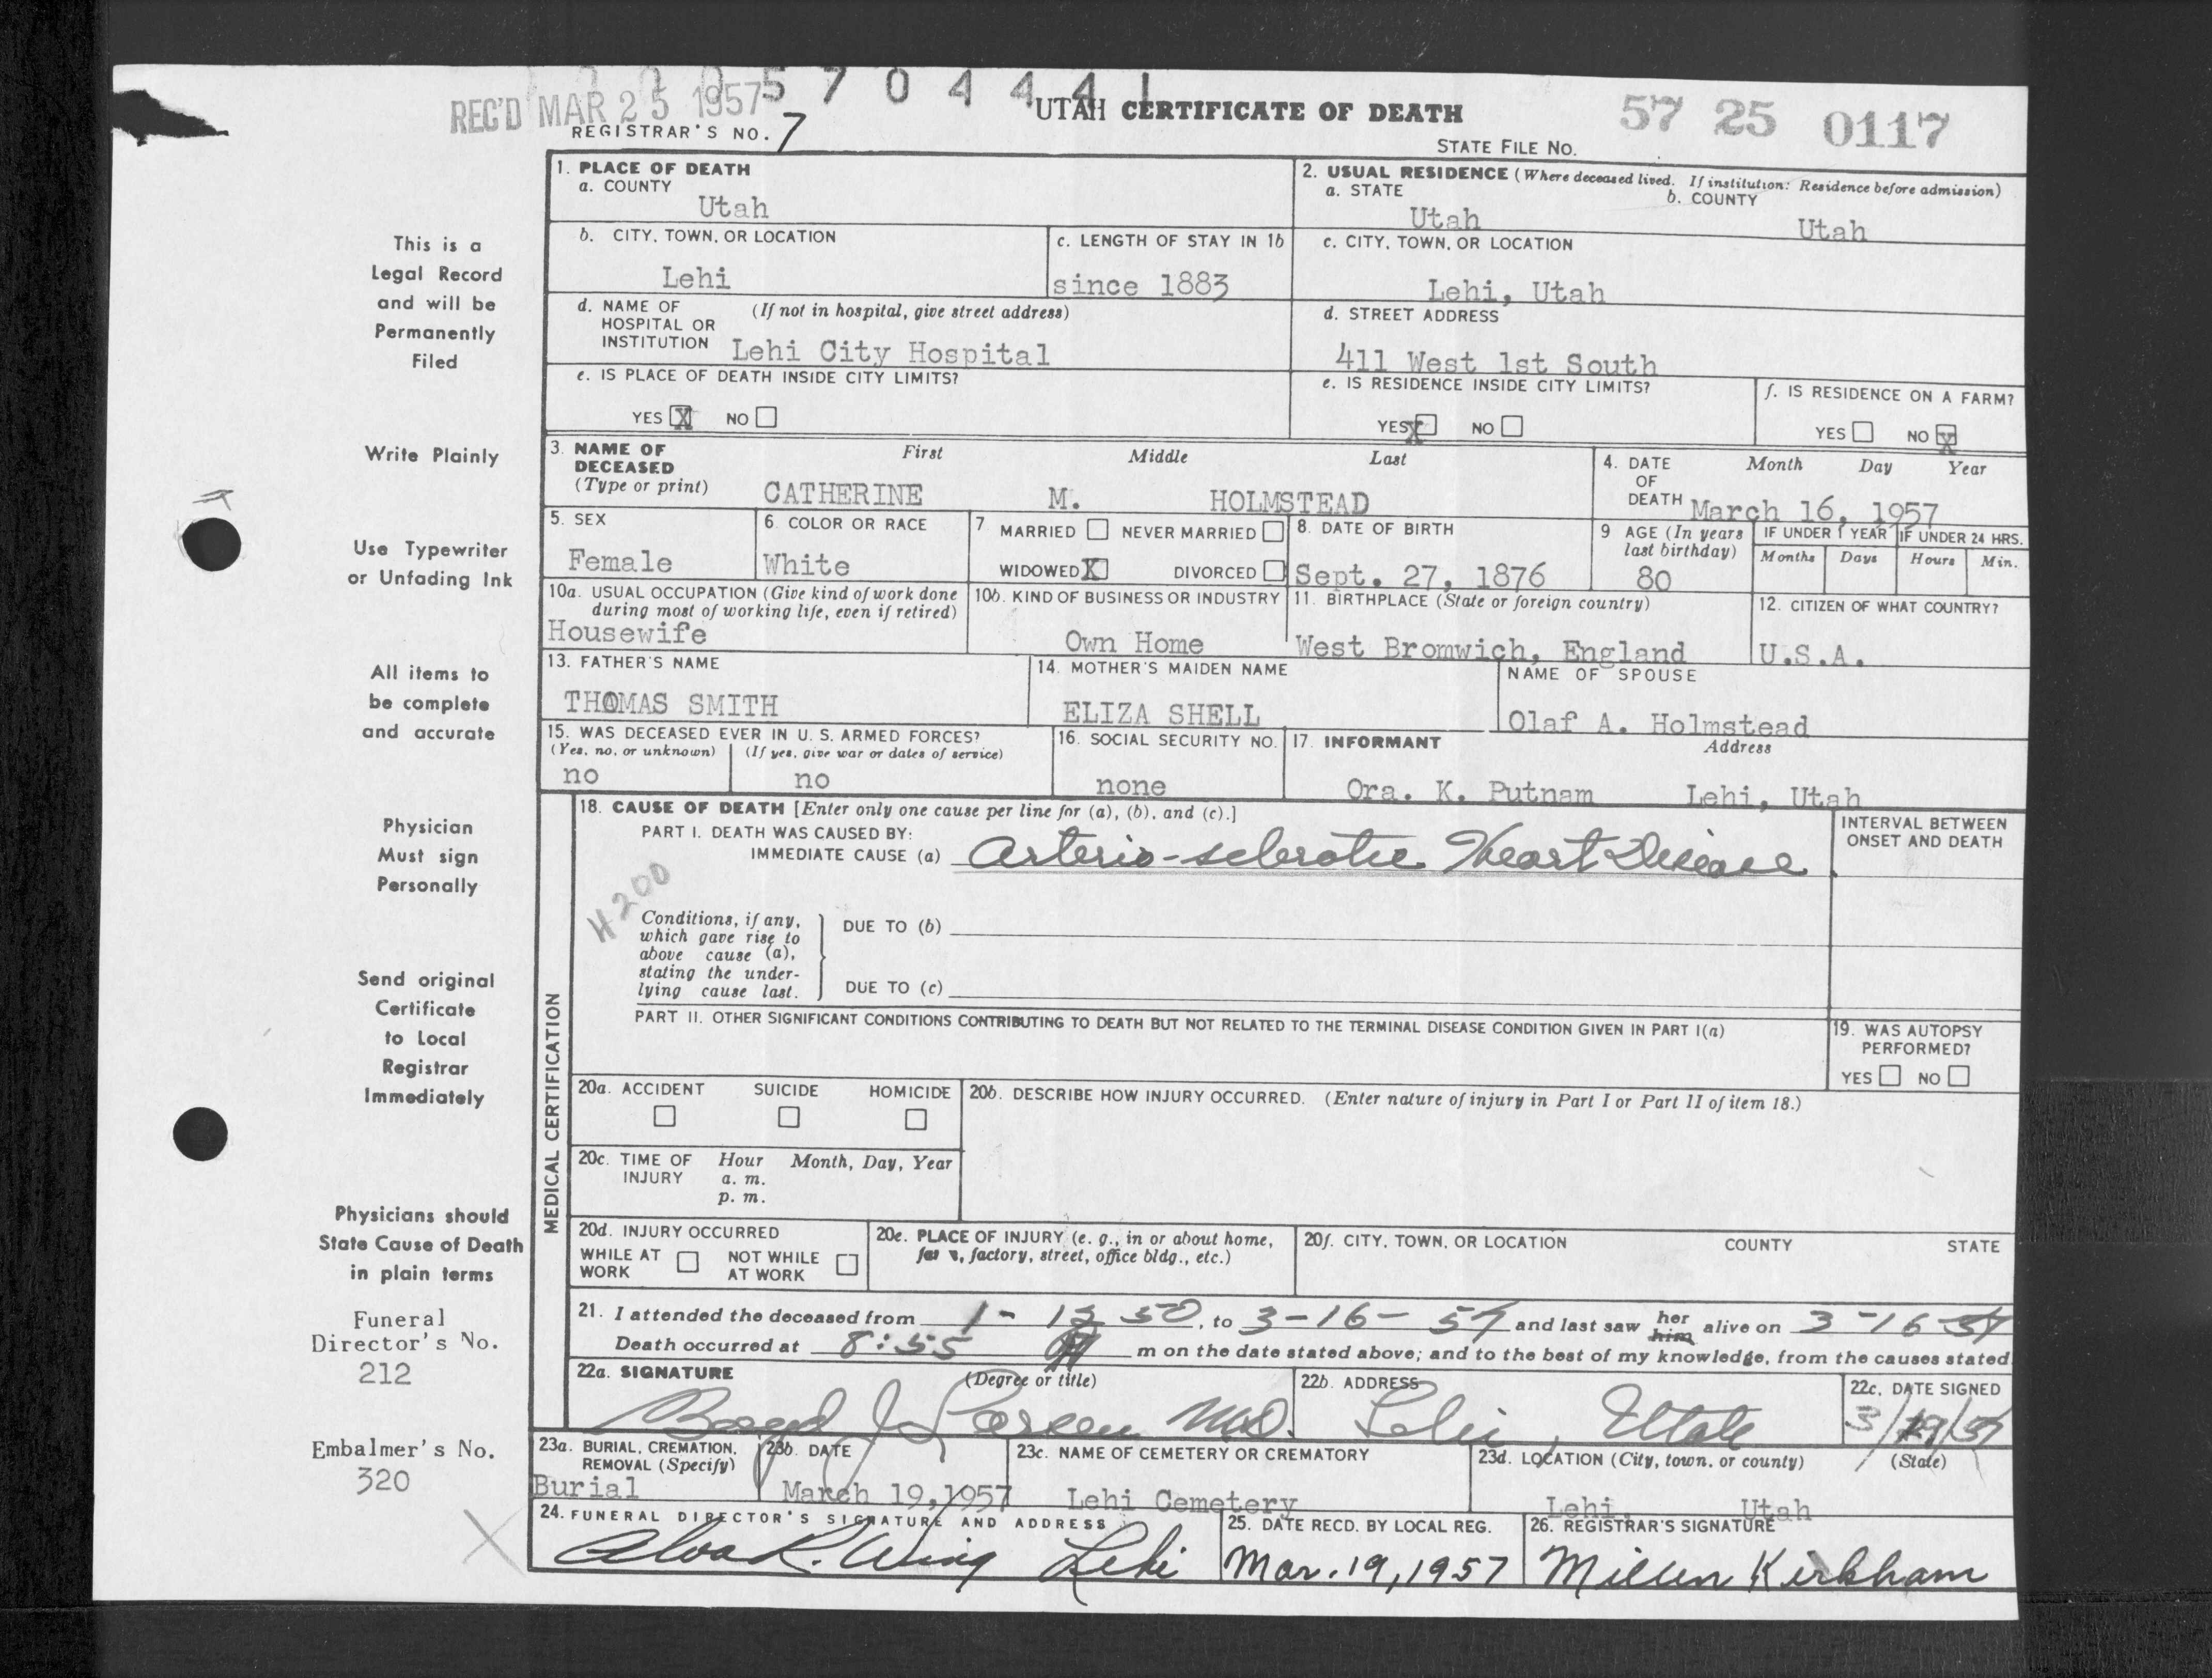 REC'D MAR 25 1957
5 7 0 4 4 4 1
UTAH CERTIFICATE OF DEATH
57 25 0117
REGISTRAR'S NO. 7
STATE FILE NO.
1. PLACE OF DEATH
a. COUNTY
Utah
2. USUAL RESIDENCE (Where deceased lived. If institution: Residence before admission)
a. STATE
b. COUNTY
Utah Utah
b. CITY, TOWN, OR LOCATION
Lehi
c. LENGTH OF STAY IN 1b
since 1883
c. CITY, TOWN, OR LOCATION
Lehi, Utah
d. NAME OF HOSPITAL OR INSTITUTION
(If not in hospital, give street address)
Lehi City Hospital
d. STREET ADDRESS
411 West 1st South
e. IS PLACE OF DEATH INSIDE CITY LIMITS?
YES X NO
e. IS RESIDENCE INSIDE CITY LIMITS?
YES X NO
f. IS RESIDENCE ON A FARM?
YES NO X
3. NAME OF DECEASED
(Type or print)
First Middle Last
CATHERINE M. HOLMSTEAD
4. DATE OF DEATH
Month Day Year
March 16, 1957
5. SEX
Female
6. COLOR OR RACE
White
7. MARRIED NEVER MARRIED
WIDOWED X DIVORCED
8. DATE OF BIRTH
Sept. 27, 1876
9 AGE (In years last birthday)
80
IF UNDER 1 YEAR
Months Days
IF UNDER 24 HRS.
Hours Min.
10a. USUAL OCCUPATION (Give kind of work done during most of working life, even if retired)
Housewife
10b. KIND OF BUSINESS OR INDUSTRY
Own Home
11. BIRTHPLACE (State or foreign country)
West Bromwich, England
12. CITIZEN OF WHAT COUNTRY?
U.S.A.
13. FATHER'S NAME
THOMAS SMITH
14. MOTHER'S MAIDEN NAME
ELIZA SHELL
NAME OF SPOUSE
Olaf A. Holmstead
15. WAS DECEASED EVER IN U. S. ARMED FORCES?
(Yes, no, or unknown) (If yes, give war or dates of service)
no no
16. SOCIAL SECURITY NO.
none
17. INFORMANT Address
Ora. K. Putnam Lehi, Utah
MEDICAL CERTIFICATION
18. CAUSE OF DEATH [Enter only one cause per line for (a), (b), and (c).]
PART I. DEATH WAS CAUSED BY:
IMMEDIATE CAUSE (a) Arterio-sclerotic Heart Disease
INTERVAL BETWEEN ONSET AND DEATH
4200
Conditions, if any,
which gave rise to
above cause (a),
stating the under-
lying cause last.
DUE TO (b)
DUE TO (c)
PART II. OTHER SIGNIFICANT CONDITIONS CONTRIBUTING TO DEATH BUT NOT RELATED TO THE TERMINAL DISEASE CONDITION GIVEN IN PART I(a)
19. WAS AUTOPSY PERFORMED?
YES NO
20a. ACCIDENT SUICIDE HOMICIDE
20b. DESCRIBE HOW INJURY OCCURRED. (Enter nature of injury in Part I or Part II of item 18.)
20c. TIME OF INJURY
Hour Month, Day, Year
a. m.
p. m.
20d. INJURY OCCURRED
WHILE AT WORK NOT WHILE AT WORK
20e. PLACE OF INJURY (e. g., in or about home, farm, factory, street, office bldg., etc.)
20f. CITY, TOWN, OR LOCATION COUNTY STATE
21. I attended the deceased from 1-13 50, to 3-16-57 and last saw her him alive on 3-16-57
Death occurred at 8:55 m on the date stated above; and to the best of my knowledge, from the causes stated
22a. SIGNATURE (Degree or title)
Boyd J Larsen M.D.
22b. ADDRESS
Lehi, Utah
22c. DATE SIGNED
3/19/57
23a. BURIAL, CREMATION, REMOVAL (Specify)
Burial
23b. DATE
March 19, 1957
23c. NAME OF CEMETERY OR CREMATORY
Lehi Cemetery
23d. LOCATION (City, town, or county) (State)
Lehi, Utah
24. FUNERAL DIRECTOR'S SIGNATURE AND ADDRESS
Alva R. Wing Lehi
25. DATE RECD. BY LOCAL REG.
Mar. 19, 1957
26. REGISTRAR'S SIGNATURE
Millen Kirkham
This is a
Legal Record
and will be
Permanently
Filed
Write Plainly
Use Typewriter
or Unfading Ink
All items to
be complete
and accurate
Physician
Must sign
Personally
Send original
Certificate
to Local
Registrar
Immediately
Physicians should
State Cause of Death
in plain terms
Funeral
Director's No.
212
Embalmer's No.
320